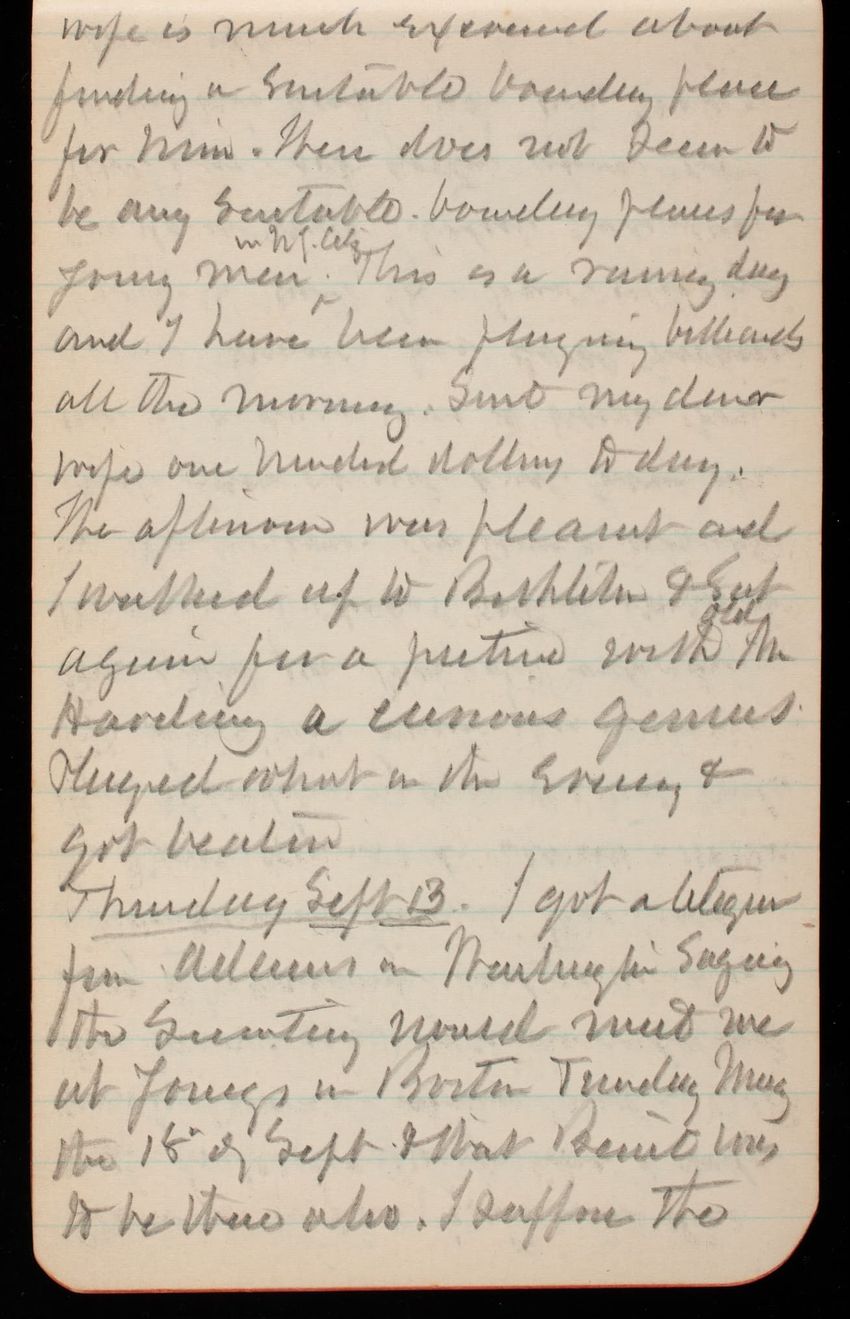 wife is much exercised about
finding a suitable boarding place
for him. There does not seem to
be any suitable boarding places for
in N.Y. City
young men. This is a rainy day
and I have been playing billiards
all the morning. Sent my dear
wife one hundred dollars to day.
The afternoon was pleasant and
I walked up to Bethlehem & Sat
again for a picture with old Mr
Harding a curious genius
Played whist in the evening &
got beaten
Thursday Sept 13. I got a telegram
from Adams in Washington saying
the Secretary would meet me
at Youngs in Boston Tuesday
the 18" of Sept & that was
to be there also. I suppose the